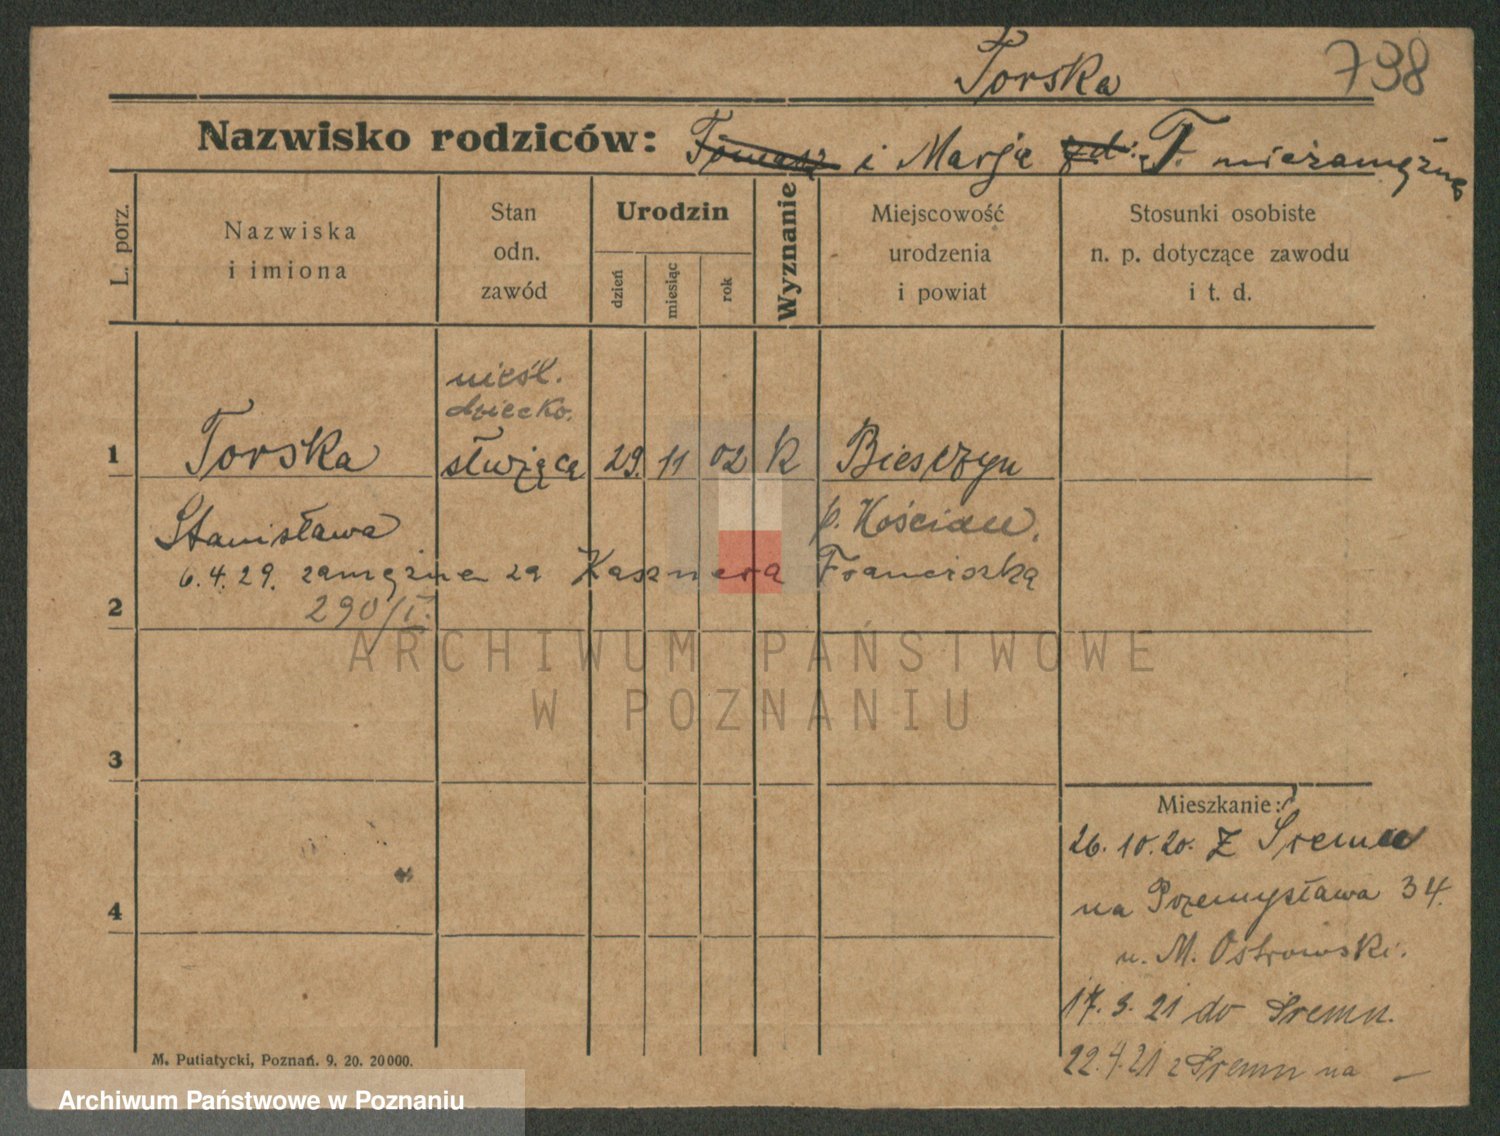 Torska 798
Nazwisko rodziców: Tomasz i Marja T. niezamężna
L. porz.
Nazwiska
i imiona
Stan
odn.
zawód
Urodzin
dzień
miesiąc
rok
Wyznanie
Miejscowość
urodzenia
i powiat
Stosunki osobiste
n. p. dotyczące zawodu
i t. d.
nieśl.
dziecko.
1 Torska służąca 29. 11 02 k Bieszyn
Stanisława p. Kościan.
6.4.29. zamężna za Kasznera Franciszka
2 290/I.
ARCHIWUM PAŃSTWOWE
W POZNANIU
3
4
Mieszkanie:
26. 10. 20. z Śremu
na Przemysława 34.
u. M. Ostrowski.
17. 3. 21 do Śremu.
22. 4. 21 z Śremu na —
M. Putiatycki, Poznań. 9. 20. 20000.
Archiwum Państwowe w Poznaniu